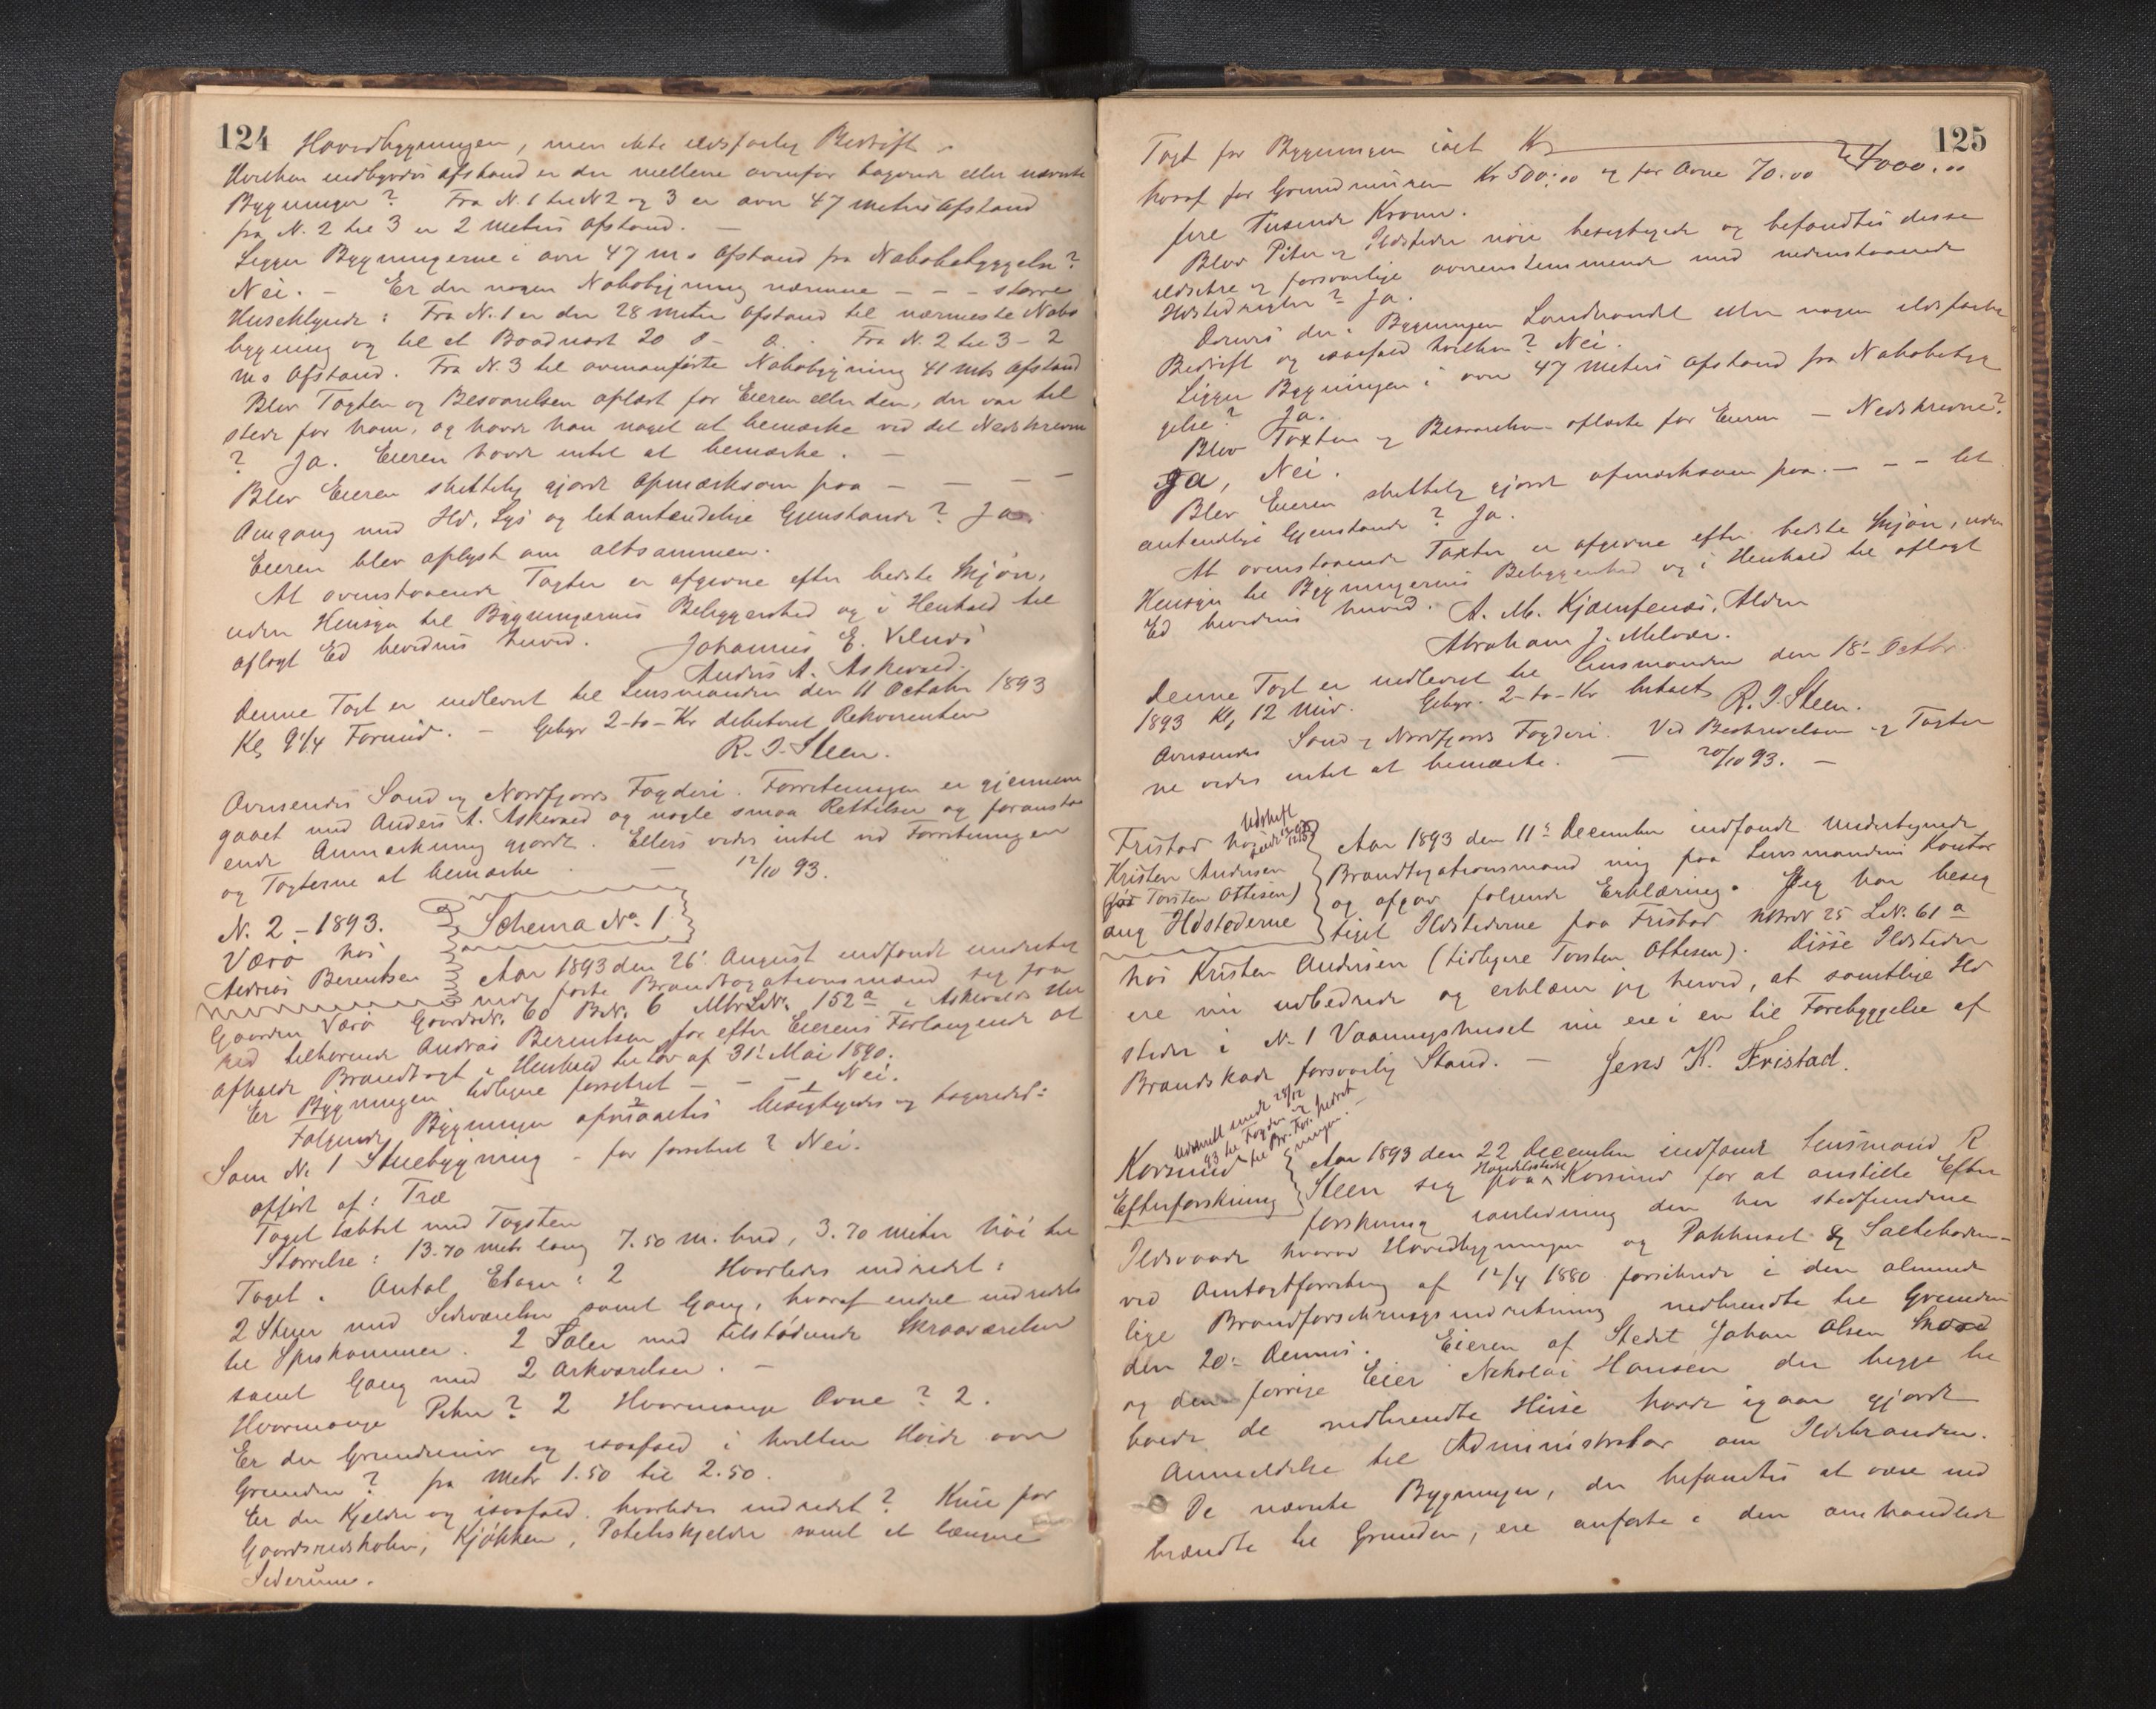 124 Hovedbygningen, men ikke ildsfarlig Bedrift.
Hvilken indbyrdes afstand er der mellem ovenfor tagerede eller nævnte
Bygninger? Fra N. 1 til N 2 og 3 er over 47 meters Afstand
fra N. 2 til 3 er 2 meters Afstand. –
Ligger Bygningerne i over 47 m s Afstand fra Nabobebyggelse?
Nei. – Er der nogen Nabobygning nærmere – – – større
Huseklynde: Fra N. 1 er der 28 meter Afstand til nærmeste Nabo
bygning og til et Baadnøst 20 D- o. Fra N. 2 til 3 – 2
m s Afstand. Fra N. 3 til ovenanførte Nabobygning 41 mts Afstand
Blev Taxten og Besvarelsen oplæst for Eieren eller den, der var til
stede for ham, og havde han noget at bemærke ved det Nedskrevne
? Ja. Eieren havde intet at bemærke. –
Blev Eieren skriftlig gjordt opmærksom paa – – – –
Omgang med Ild, Lys og letantændelige Gjenstande? Ja.
Eieren blev oplyst om altsammen.
At ovenstaaende Taxter er afgivne efter bedste Skjøn,
uden Hensyn til Bygningernes Beliggenhed og i Henhold til
aflagt Ed bevidnes herved. Johannes E. Vilnæs
Anders A. Askevold.
Denne Taxt er indleveret til Lensmanden den 11 Octobr 1893
Kl, 9 1/4 Formid. – Gebyr 2 - to - Kr debiteret Rekvirenten
R. I. Steen.
Oversendes Sønd og Nordfjords Fogderi. Forretningen er gjennem
gaaet med Anders A. Askevold og nogle smaa Rettelser og foranstaa
ende Anmærkning gjordt. Ellers vides intet ved Forretningen
og Taxterne at bemærke. – 12/10 93.
N. 2 – 1893. Schema No. 1
Værø hos
Andreas Berentsen Aar 1893 den 26. August indfandt underteg
nede faste Brandtaxationsmænd sig paa
Gaarden Værø GaardsN. 60 B.N. 6 Mtr.L.N. 152a i Askevolds Her
red tilhørende Andreas Berentsen for efter Eierens Forlangende at
afholde Brandtaxt i Henhold til Lov af 31. Mai 1890.
Er Bygningen tidligere forsikret – – – Nei.
Følgende Bygninger opmaaltes 2 besigtigedes 1 og taxeredes:
Som N. 1 Stuebygning – før forsikret? Nei.
opført af: Træ
Taget tækket med Tagsten
Størrelse: 13.70 meter lang 7.50 m. bred, 3.70 meter høi til
Taget. Antal Etager: 2 Hvorledes indredet:
2 Stuer med Sideværelser samt Gang, hvoraf endeel indredet
til Spiskammer. 2 Saler med tilstødende Skraaværelser
samt Gang med 2 Arkværelser. –
Hvormange Piber? 2 Hvormange Ovne? 2.
Er der Grundmur og isaafald i hvilken Høide over
Grunden? fra Meter 1.50 til 2.50.
Er der Kjelder og isaafald hvorledes indredet? Kun for
Gaardsredskaber, Kjøkken, Poteteskjelder samt et længere
Siderum.
125
Taxt for Bygningen ialt Kr ——— 4000.00
hvoraf for Grundmuren Kr 500.00 og for Ovne 70.00
fire Tusende Kroner.
Blev Piber og Ildsteder nøie besigtigede og befandtes disse
ildsikre og forsvarlige overensstemmende med nedenstaaende
Ildstedregler? Ja.
Drives der i Bygningen Landhandel eller nogen ildsfarlig
Bedrift og isaafald hvilken? Nei.
Ligger Bygningen i over 47 meters Afstand fra Nabobebyg
gelse? Ja.
Blev Taxten og Besvarelsen oplæste for Eieren – Nedskrevne?
Ja, Nei.
Blev Eieren skriftelig gjordt opmærksom paa – – – let
antændlige Gjenstande? Ja.
At ovenstaaende Taxter er afgivne efter bedste Skjøn, uden
Hensyn til Bygningernes Beliggenhed og i Henhold til aflagt
Ed bevidnes herved. A. M. Kjæmpenæs, Alden
Abraham J. Melvær.
Denne Taxt er indleveret til Lensmanden den 18. Octbr.
1893 Kl, 12 Mid. Gebyr. 2 - to - Kr betalt R. I. Steen.
Oversendes Sønd og Nordfjords Fogderi. Ved Beskrivelsen og Taxter
ne vides intet at bemærke. – 20/10 93. –
Udskrift
Fristad hos
Kristen Andersen
(før Torsten Ottesen)
ang Ildstederne
Aar 1893 den 11te December indfandt undertegnede
Brandtaxationsmand mig paa Lensmandens Kontor
og afgav følgende Erklæring: Jeg har besig
tiget Ildstederne paa Fristad Brn 25 L.N. 61a
hos Kristen Andersen (tidligere Torsten Ottesen). Disse Ildsteder
ere nu udbedrede og erklærer jeg herved, at samtlige Ild
steder i N. 1 Vaaningshuset nu ere i en til Forebyggelse af
Brandskade forsvarlig Stand. – Jens K. Fristad.
Udskrift sendt 28/12
93 til Fogden og
til Br. For. Indret
ningen. –
Korssund
Efterforskning
Aar 1893 den 22 December indfandt Lensmand R
Steen sig paa Handelsstedet Korssund for at anstille Efter
forskning i anledning den her stedfundne
Ildsvaade hvorved Hovedbygningen og Pakhuset og Salteboden –
ved Omtaxtforretning af 12/4 1880 forsikrede i den alminde
lige Brandforsikringsindretning nedbrendte til Grunden
den 20. Dennes. Eieren af Stedet Johan Olsen
og den forrige Eier Nikolai Hansen der begge be
boede de nedbrendte Huse havde igaar gjordt
Anmeldelse til Administrator om Ildebranden.
De nævnte Bygninger, der befandtes at være ned
brændte til Grunden, ere anførte i den omhandlede